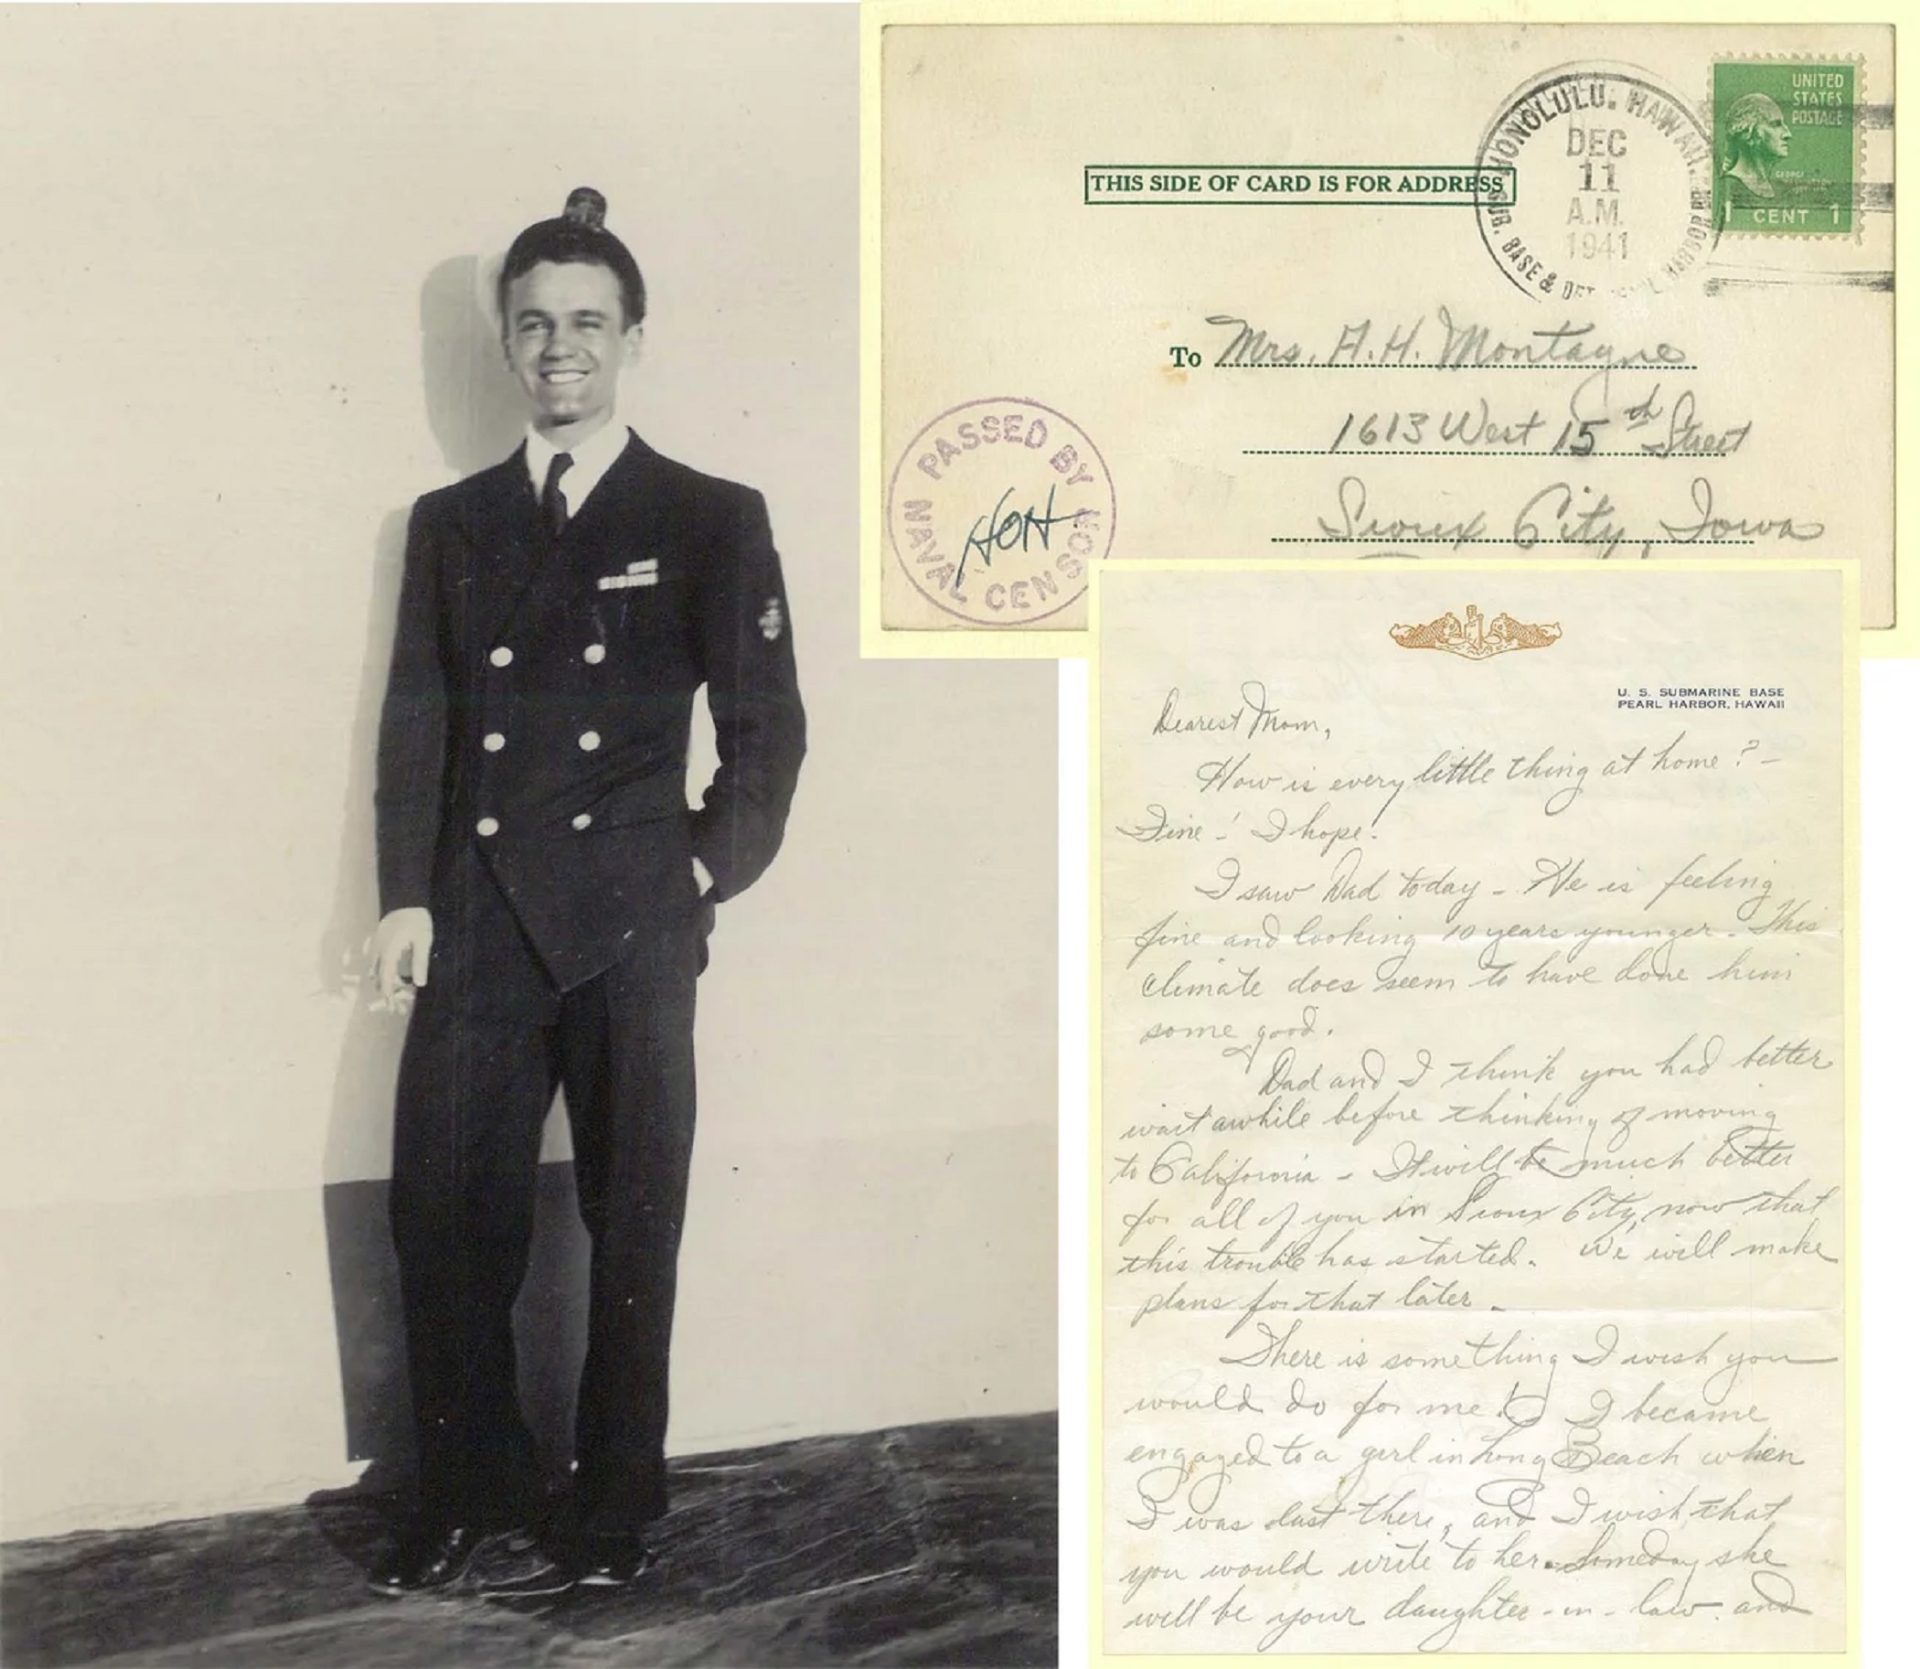 THIS SIDE OF CARD IS FOR ADDRESS
HONOLULU, HAWAII.
SUB. BASE &
DEC
11
A.M.
1941
UNITED
STATES
POSTAGE
GEORGE
1 CENT 1
To Mrs. A. H. Montagne
1613 West 15th Street
Sioux City, Iowa
PASSED BY
NAVAL CENSOR
U. S. SUBMARINE BASE
PEARL HARBOR, HAWAII
Dearest Mom,
How is every little thing at home? -
Fine-! I hope!
I saw Dad today - He is feeling
fine and looking 10 years younger. This
climate does seem to have done him
some good.
Dad and I think you had better
wait awhile before thinking of moving
to California - It will be much better
for all of you in Sioux City, now that
this trouble has started. We will make
plans for that later -
There is something I wish you
would do for me! I became
engaged to a girl in Long Beach when
I was last there, and I wish that
you would write to her. Someday she
will be your daughter-in-law and